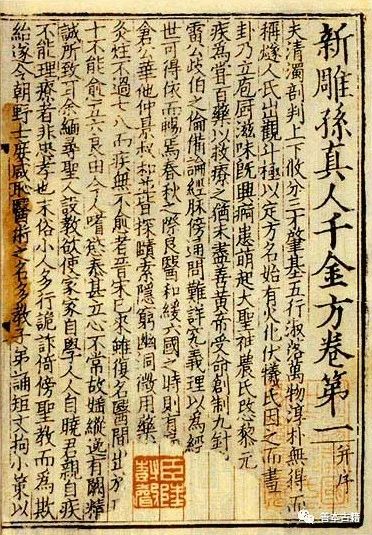 新雕孫真人千金方卷第一并序
夫清濁剖判上下攸分三才肇基五行淑落萬物淳朴無得而
稱燧人氏出觀斗極以定方名始有火化伏犧氏因之而畫
卦乃立庖厨滋味既興痾患萌起大聖神農氏愍黎元
疾為嘗百藥以救療之猶未盡善黃帝受命創制九針
雷公歧伯之倫備論經脉傍通問難詳究義理以為經
世可得依而暢焉春秋之際良醫和緩六國之時則有
倉公華他仲景叔和並皆探賾索隱窮幽洞微用藥
灸炷不過七八而疾無不愈者晉宋已來雖復名醫間出方
十不能愈五六良由今人嗜慾泰甚立心不常故媱縱逸有闕稱
誠所致耳余緬尋聖人設教欲使家家自學人人自曉君親有疾
不能療者非忠孝也末俗小人多行詭詐倚傍聖教而為欺
紿遂令朝野士庶咸恥醫術之名多教子弟誦短文拘小策以
臣陸
善本古籍